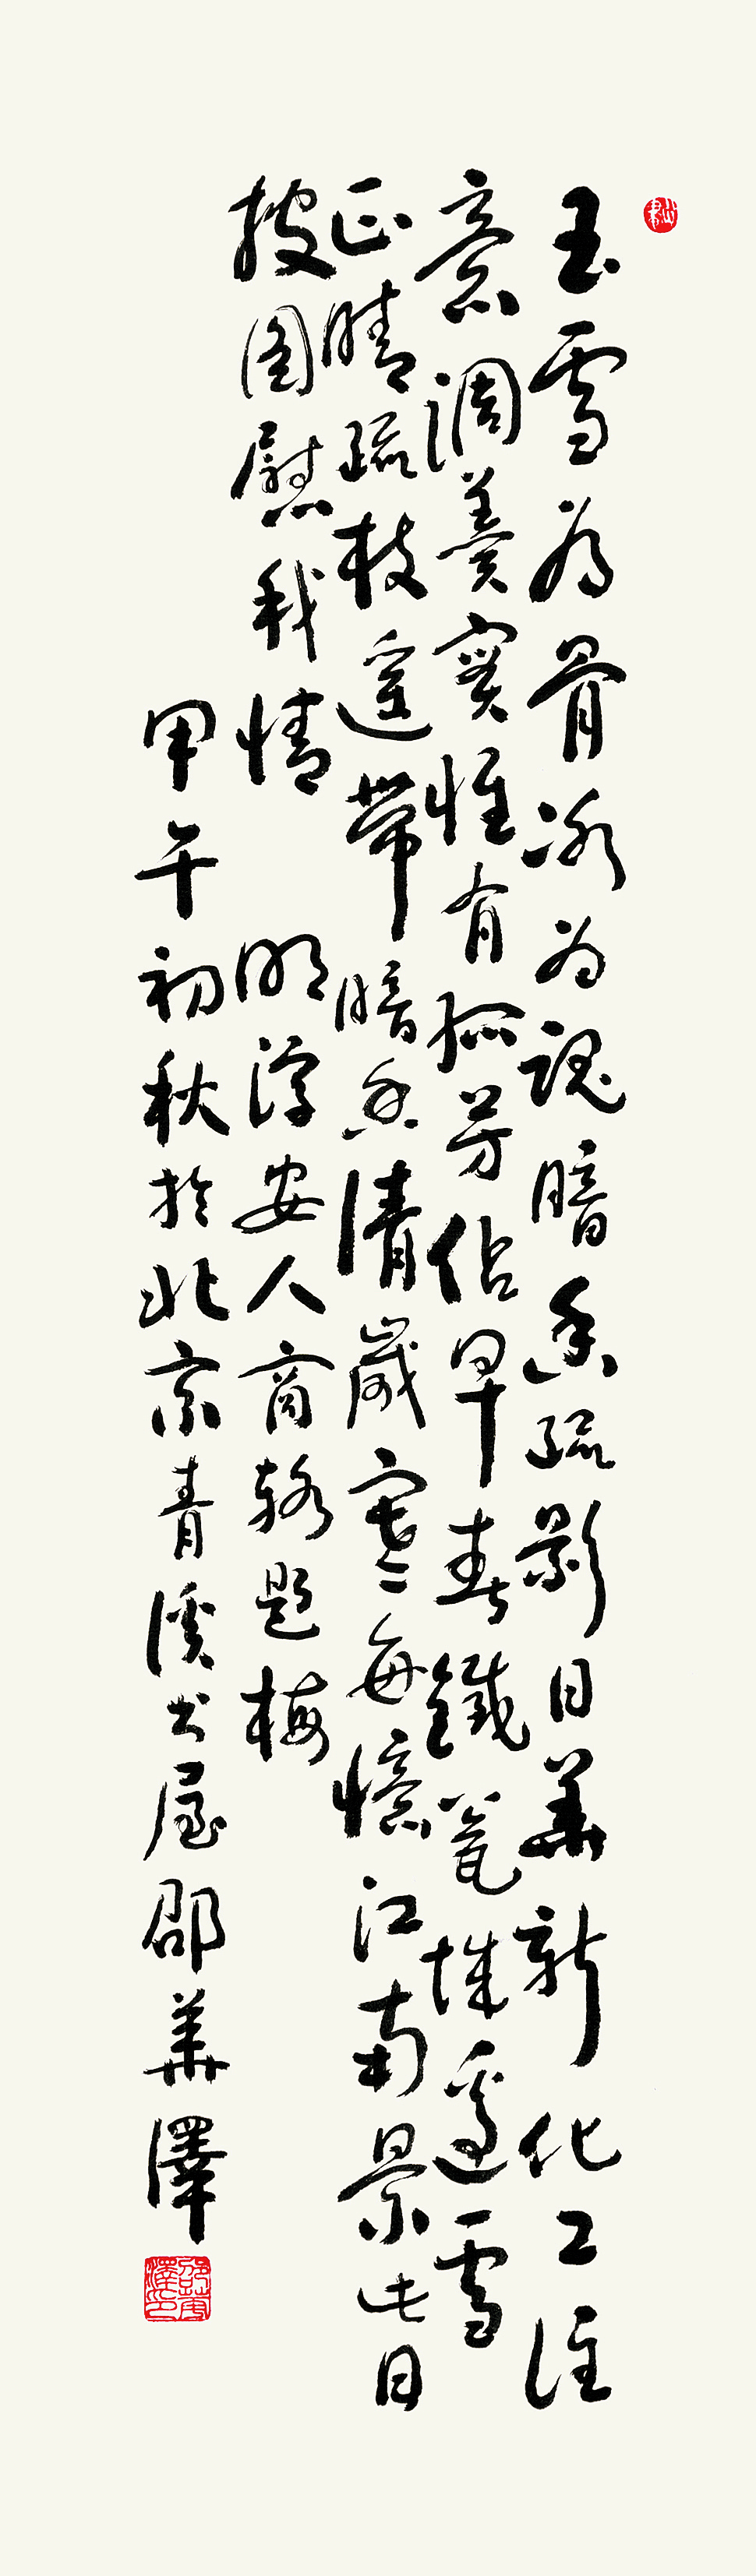 玉雪為骨冰為魂暗香疏影日華新化工注
意調羹實惟有孤芳佔早春鐵瓮城邊雪
正晴疏枝遥帶暗香清歲寒每憶江南景此日
披图慰我情 明淳安人商輅題梅
甲午初秋於北京青溪书屋邵華澤
邵華澤印